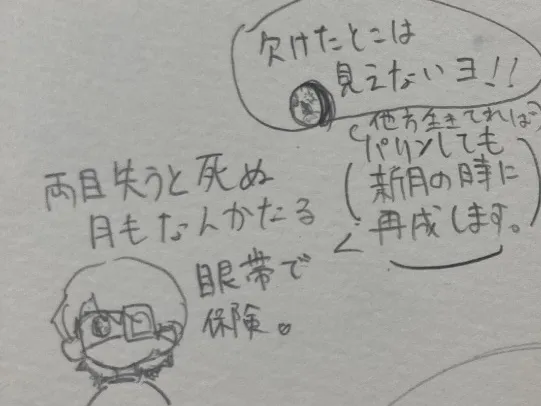 欠けたとこは
見えないヨ!!
(他方生きてれば)
パリンしても
新月の時に
再成します。
両目失うと死ぬ
月もなんかたる
眼帯で
保険。